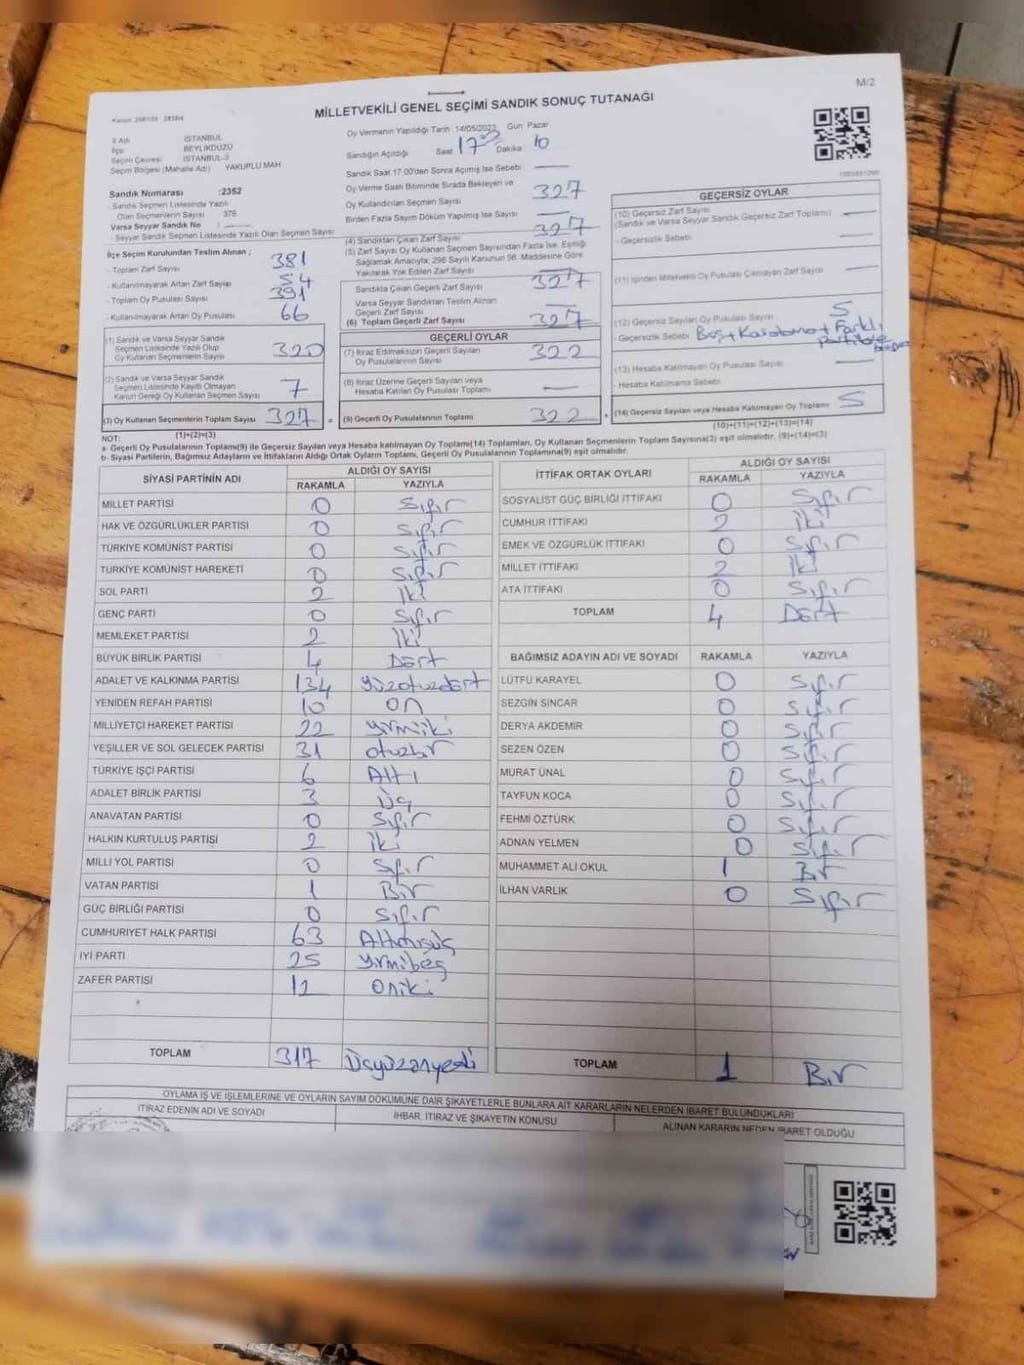 M/2
MİLLETVEKİLİ GENEL SEÇİMİ SANDIK SONUÇ TUTANAĞI
İl Adı İSTANBUL
İlçe BEYLİKDÜZÜ
Seçim Çevresi İSTANBUL-3
Seçim Bölgesi (Mahalle Adı) YAKUPLU MAH
Oy Vermenin Yapıldığı Tarih 14/05/2023 Gün Pazar
Sandığın Açıldığı Saat 17 Dakika 10
Sandık Saat 17.00'den Sonra Açılmış İse Sebebi
Sandık Numarası :2352
- Sandık Seçmen Listesinde Yazılı
Olan Seçmenlerin Sayısı 376
Varsa Seyyar Sandık No
- Seyyar Sandık Seçmen Listesinde Yazılı Olan Seçmen Sayısı
Oy Verme Saati Bitiminde Sırada Bekleyen ve
Oy Kullandırılan Seçmen Sayısı 327
Birden Fazla Sayım Döküm Yapılmış İse Sayısı
İlçe Seçim Kurulundan Teslim Alınan ;
- Toplam Zarf Sayısı 381
- Kullanılmayarak Artan Zarf Sayısı 54
- Toplam Oy Pusulası Sayısı 391
- Kullanılmayarak Artan Oy Pusulası 66
(1) Sandık ve Varsa Seyyar Sandık
Seçmen Listesinde Yazılı Olup
Oy Kullanan Seçmenlerin Sayısı 320
(2) Sandık ve Varsa Seyyar Sandık
Seçmen Listesinde Kayıtlı Olmayan
Kanun Gereği Oy Kullanan Seçmen Sayısı 7
(3) Oy Kullanan Seçmenlerin Toplam Sayısı 327
(4) Sandıktan Çıkan Zarf Sayısı 327
(5) Zarf Sayısı Oy Kullanan Seçmen Sayısından Fazla İse, Eşitliği
Sağlamak Amacıyla; 298 Sayılı Kanunun 98. Maddesine Göre
Yakılarak Yok Edilen Zarf Sayısı
Sandıkta Çıkan Geçerli Zarf Sayısı 327
Varsa Seyyar Sandıktan Teslim Alınan
Geçerli Zarf Sayısı
(6) Toplam Geçerli Zarf Sayısı 327
GEÇERLİ OYLAR
(7) İtiraz Edilmeksizin Geçerli Sayılan
Oy Pusulalarının Sayısı 322
(8) İtiraz Üzerine Geçerli Sayılan veya
Hesaba Katılan Oy Pusulası Toplamı
= (9) Geçerli Oy Pusulalarının Toplamı 322
GEÇERSİZ OYLAR
(10) Geçersiz Zarf Sayısı
(Sandık ve Varsa Seyyar Sandık Geçersiz Zarf Toplamı)
- Geçersizlik Sebebi
(11) İçinden Milletvekili Oy Pusulası Çıkmayan Zarf Sayısı
(12) Geçersiz Sayılan Oy Pusulası Sayısı 5
- Geçersizlik Sebebi Boş + Karalama + Farklı
(13) Hesaba Katılmayan Oy Pusulası Sayısı
- Hesaba Katılmama Sebebi
+ (14) Geçersiz Sayılan veya Hesaba Katılmayan Oy Toplamı 5
(10)+(11)+(12)+(13)=(14)
NOT: (1)+(2)=(3)
a- Geçerli Oy Pusulalarının Toplamı(9) ile Geçersiz Sayılan veya Hesaba katılmayan Oy Toplamı(14) Toplamları, Oy Kullanan Seçmenlerin Toplam Sayısına(3) eşit olmalıdır. (9)+(14)=(3)
b- Siyasi Partilerin, Bağımsız Adayların ve İttifakların Aldığı Ortak Oyların Toplamı, Geçerli Oy Pusulalarının Toplamına(9) eşit olmalıdır.
SİYASİ PARTİNİN ADI ALDIĞI OY SAYISI
RAKAMLA YAZIYLA
MİLLET PARTİSİ 0 Sıfır
HAK VE ÖZGÜRLÜKLER PARTİSİ 0 Sıfır
TÜRKİYE KOMÜNİST PARTİSİ 0 Sıfır
TÜRKİYE KOMÜNİST HAREKETİ 0 Sıfır
SOL PARTİ 2 İki
GENÇ PARTİ 0 Sıfır
MEMLEKET PARTİSİ 2 İki
BÜYÜK BİRLİK PARTİSİ 4 Dört
ADALET VE KALKINMA PARTİSİ 134 Yüzotuzdört
YENİDEN REFAH PARTİSİ 10 On
MİLLİYETÇİ HAREKET PARTİSİ 22 Yirmiiki
YEŞİLLER VE SOL GELECEK PARTİSİ 31 otuzbir
TÜRKİYE İŞÇİ PARTİSİ 6 Altı
ADALET BİRLİK PARTİSİ 3 Üç
ANAVATAN PARTİSİ 0 Sıfır
HALKIN KURTULUŞ PARTİSİ 2 İki
MİLLİ YOL PARTİSİ 0 Sıfır
VATAN PARTİSİ 1 Bir
GÜÇ BİRLİĞİ PARTİSİ 0 Sıfır
CUMHURİYET HALK PARTİSİ 63 Altmışüç
İYİ PARTİ 25 Yirmibeş
ZAFER PARTİSİ 12 Oniki
TOPLAM 317 Üçyüzonyedi
İTTİFAK ORTAK OYLARI ALDIĞI OY SAYISI
RAKAMLA YAZIYLA
SOSYALİST GÜÇ BİRLİĞİ İTTİFAKI 0 Sıfır
CUMHUR İTTİFAKI 2 İki
EMEK VE ÖZGÜRLÜK İTTİFAKI 0 Sıfır
MİLLET İTTİFAKI 2 İki
ATA İTTİFAKI 0 Sıfır
TOPLAM 4 Dört
BAĞIMSIZ ADAYIN ADI VE SOYADI RAKAMLA YAZIYLA
LÜTFÜ KARAYEL 0 Sıfır
SEZGİN SİNCAR 0 Sıfır
DERYA AKDEMİR 0 Sıfır
SEZEN ÖZEN 0 Sıfır
MURAT ÜNAL 0 Sıfır
TAYFUN KOCA 0 Sıfır
FEHMİ ÖZTÜRK 0 Sıfır
ADNAN YELMEN 0 Sıfır
MUHAMMET ALİ OKUL 1 Bir
İLHAN VARLIK 0 Sıfır
TOPLAM 1 Bir
OYLAMA İŞ VE İŞLEMLERİNE VE OYLARIN SAYIM DÖKÜMÜNE DAİR ŞİKAYETLERLE BUNLARA AİT KARARLARIN NELERDEN İBARET BULUNDUKLARI
İTİRAZ EDENİN ADI VE SOYADI İHBAR, İTİRAZ VE ŞİKAYETİN KONUSU ALINAN KARARIN NEDEN İBARET OLDUĞU